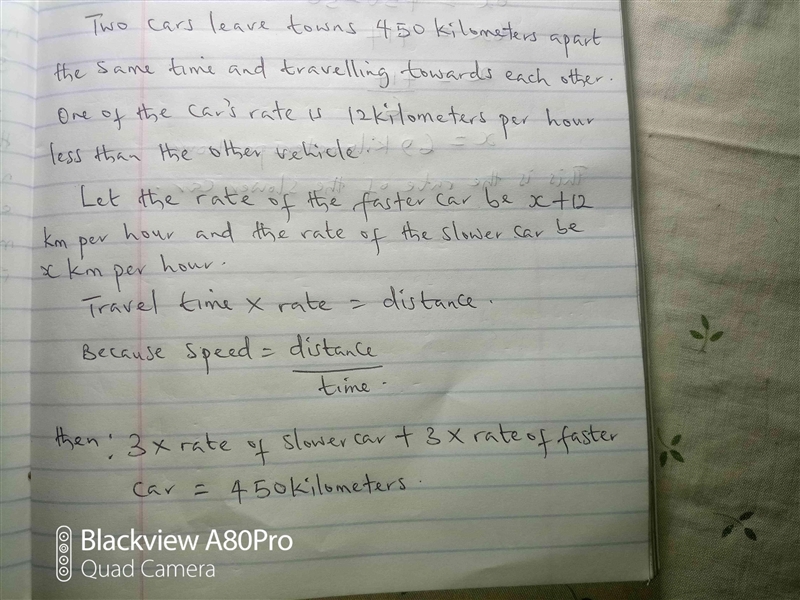 Two cars leave towns 450 kilometers apart
the same time and travelling towards each other.
One of the car's rate is 12 kilometers per hour
less than the other vehicle.
Let the rate of the faster car be x+12
km per hour and the rate of the slower car be
x km per hour.
Travel time × rate = distance.
Because speed = distance
time.
then: 3 × rate of slower car + 3 × rate of faster
car = 450 kilometers.
Blackview A80Pro
Quad Camera